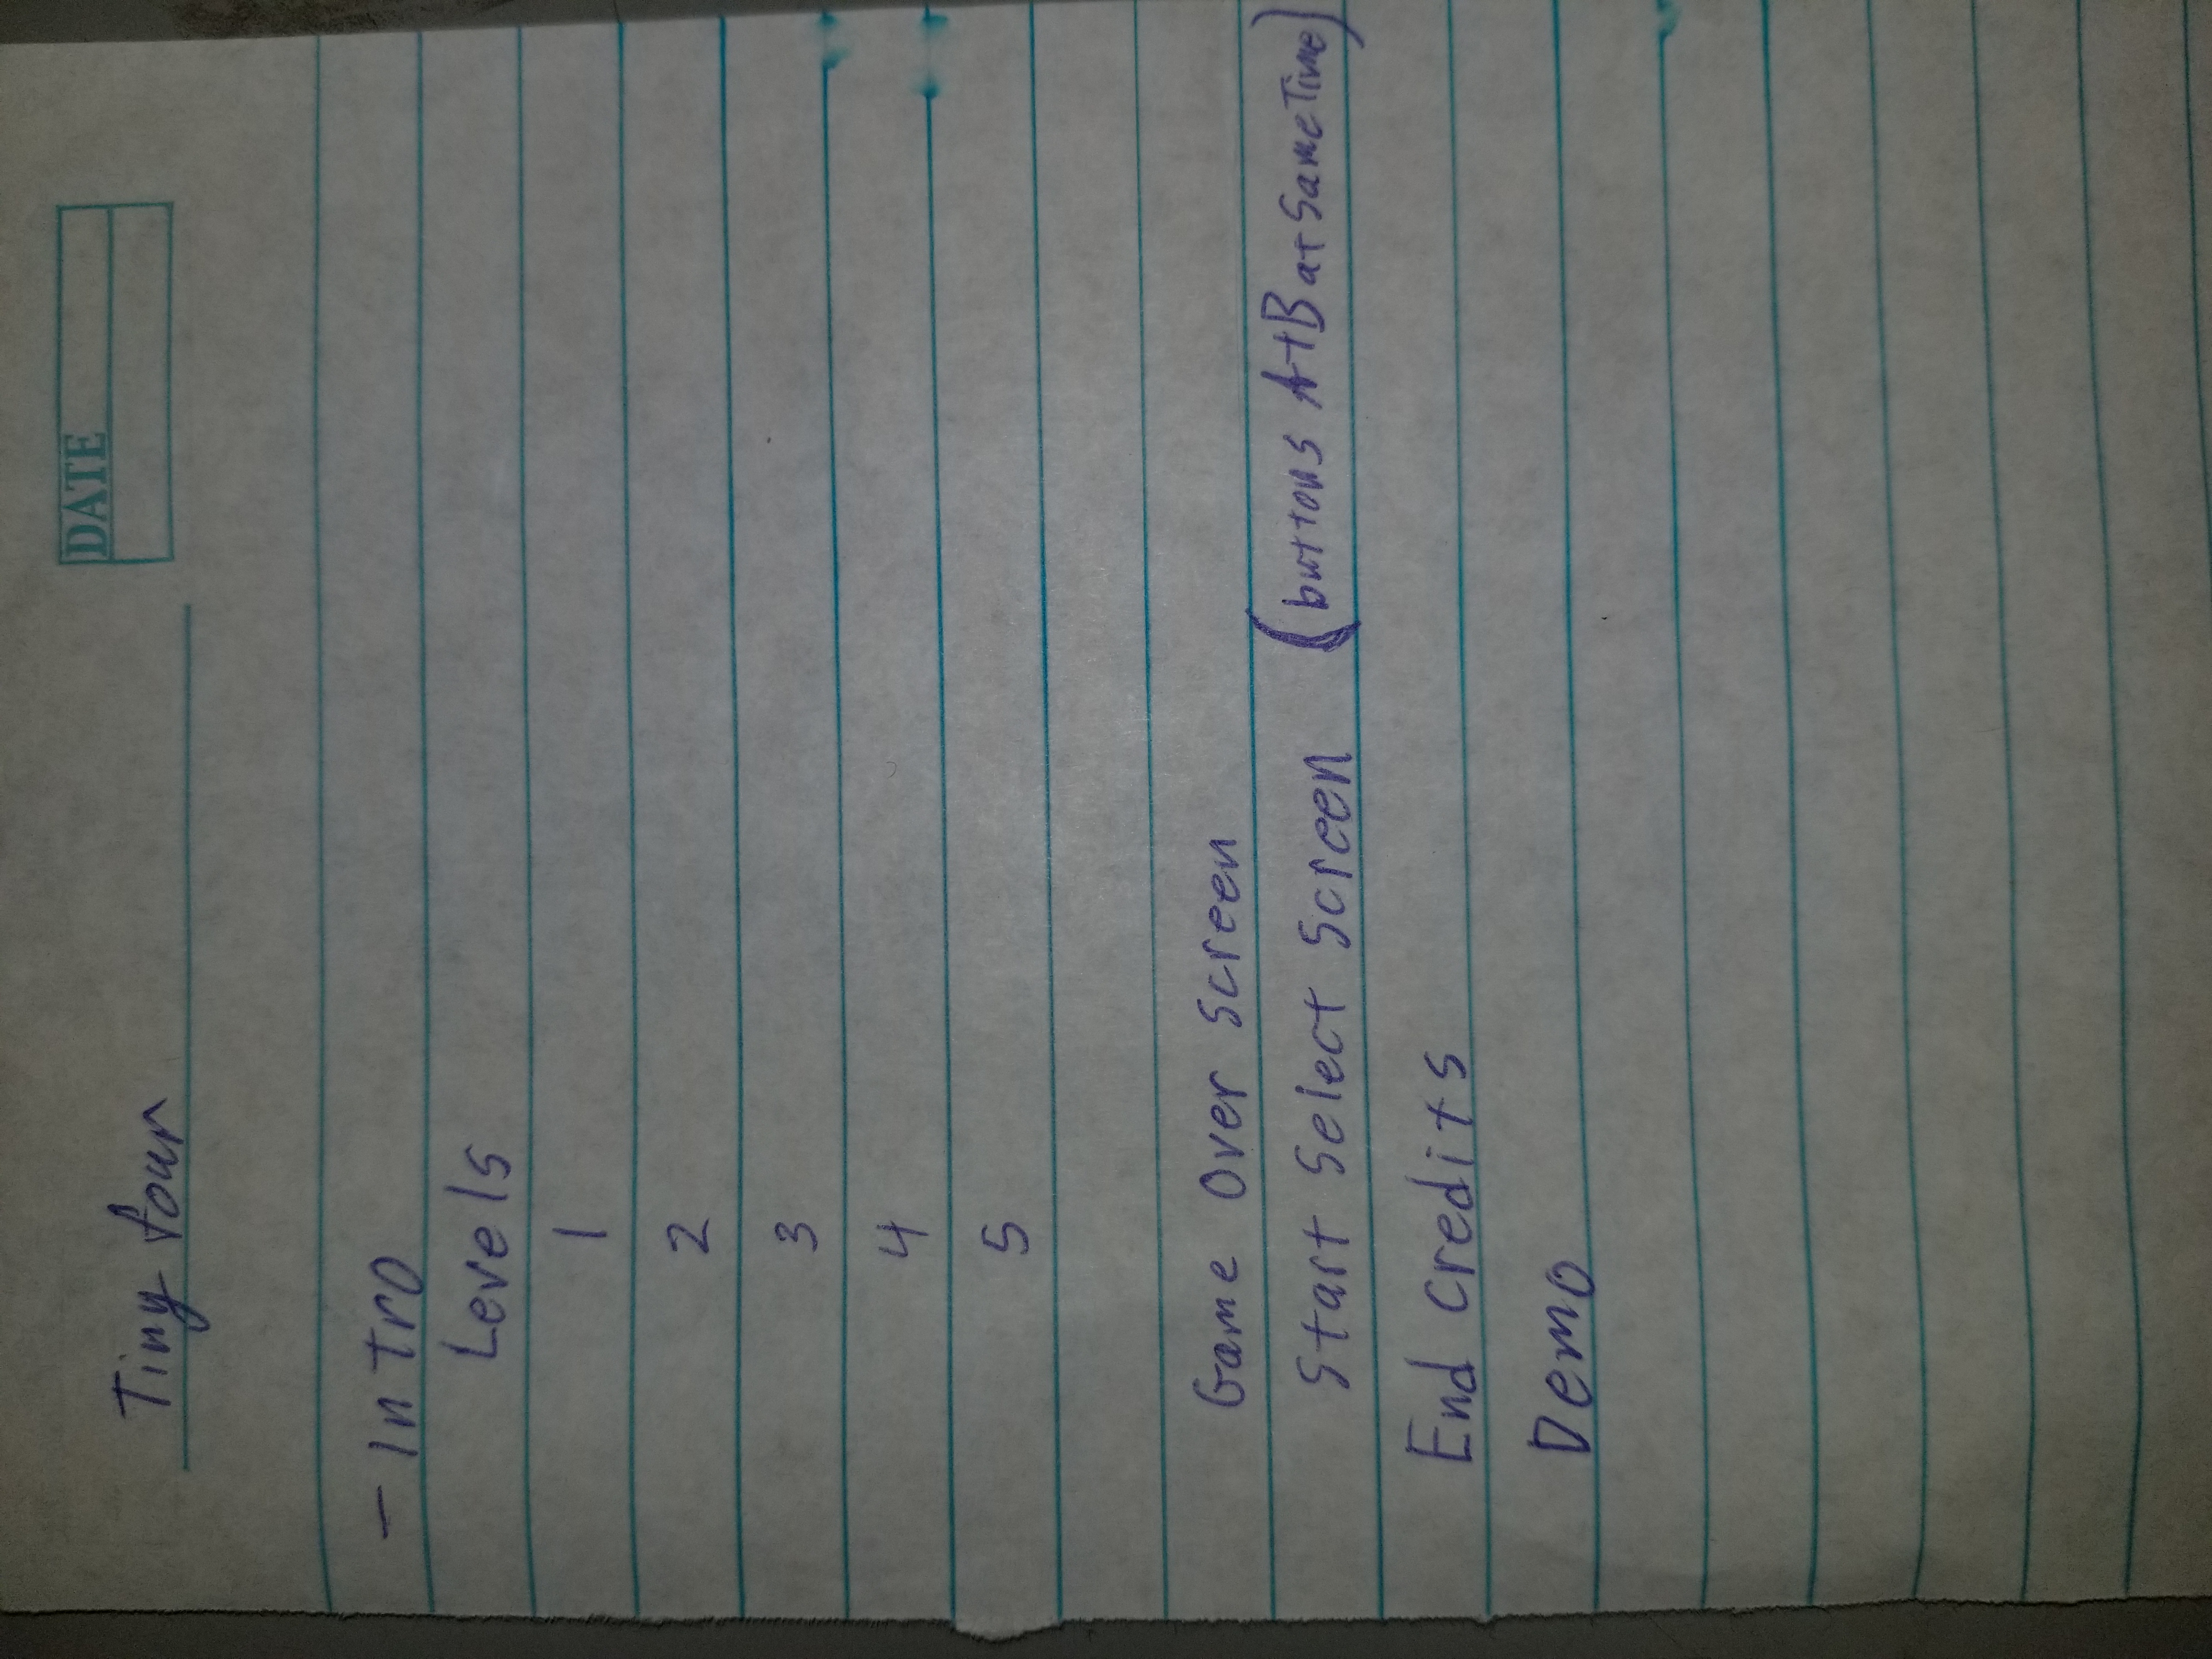 DATE
Tiny four
- Intro
Levels
1
2
3
4
5
Game Over Screen
Start Select Screen (buttons A+B at Same Time)
End Credits
Demo